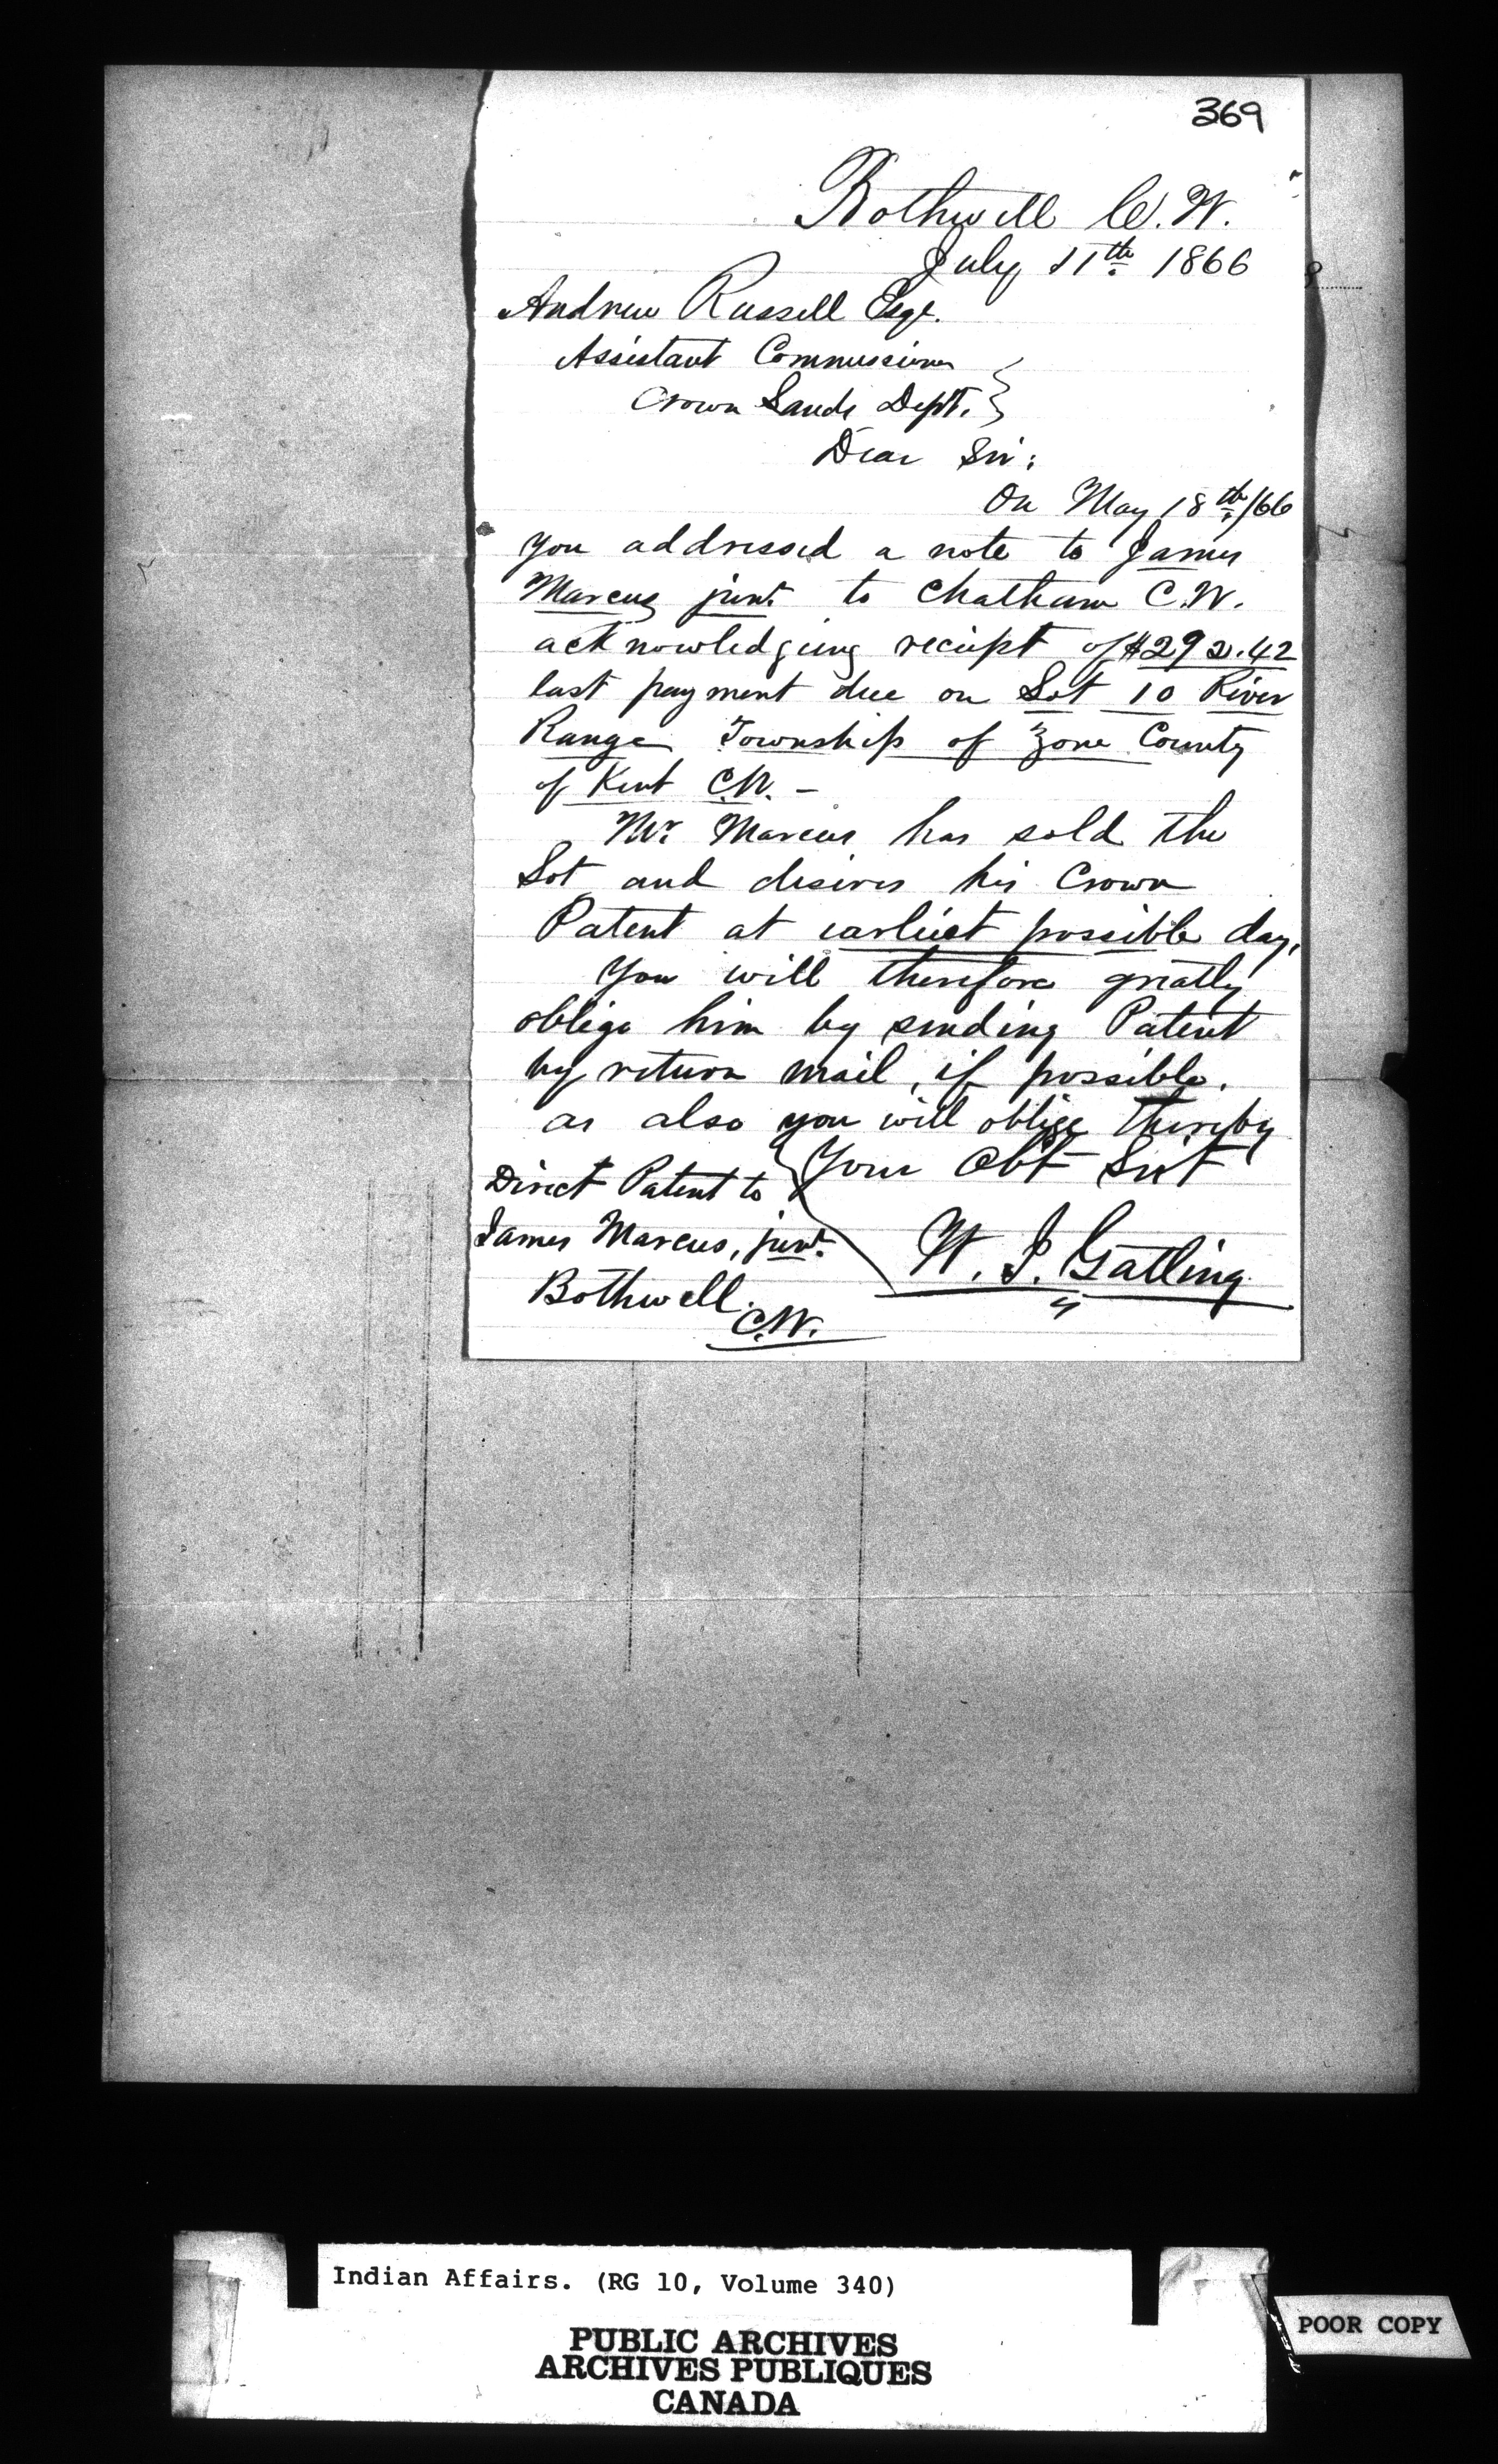 369
Bothwell C.W.
July 11th 1866
Andrew Russell Esqr.
Assistant Commissioner
Crown Lands Dept.
Dear Sir:
On May 18th/66
you addressed a note to James
Marcus junr. to Chatham C.W.
acknowledging receipt of $292.42
last payment due on Lot 10 River
Range Township of Zone County
of Kent C.W. –
Mr. Marcus has sold the
Lot and desires his Crown
Patent at earliest possible day.
You will therefore greatly
oblige him by sending Patent
by return mail, if possible.
as also you will oblige thereby
Your Obt Svt
Direct Patent to
James Marcus, junr.
W. J. Gatling
Bothwell.
C.W.
Indian Affairs. (RG 10, Volume 340)
PUBLIC ARCHIVES
ARCHIVES PUBLIQUES
CANADA
POOR COPY